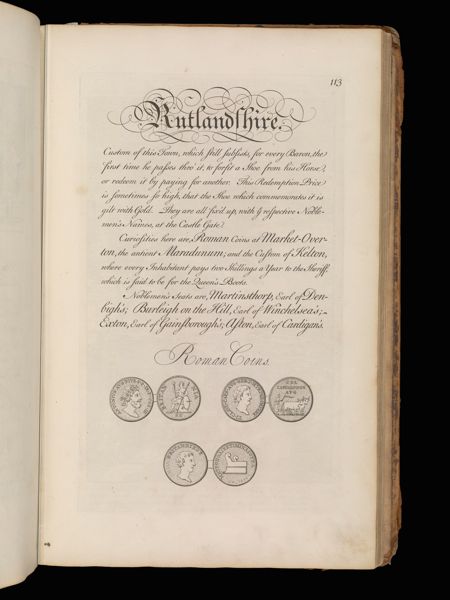 113
Rutlandshire.
Custom of this Town, which still subsists, for every Baron, the
first time he passes thro' it, to forfit a Shoe from his Horse,
or redeem it by paying for another. This Redemption Price
is sometimes so high, that the Shoe which commemorates it is
gilt with Gold. They are all fix'd up, with ye respective Noble-
men's Names, at the Castle Gate.
Curiosities here are, Roman Coins at Market-Over-
ton, the antient Maradunum; and the Custom of Kelton,
where every Inhabitant pays two Shillings a Year to the Sheriff,
which is said to be for the Queen's Boots.
Noblemen's Seats are, Martinsthorp, Earl of Den-
bigh's; Burleigh on the Hill, Earl of Winchelsea's;
Exton, Earl of Gainsborough's; Aston, Earl of Cardigan's.
Roman Coins.